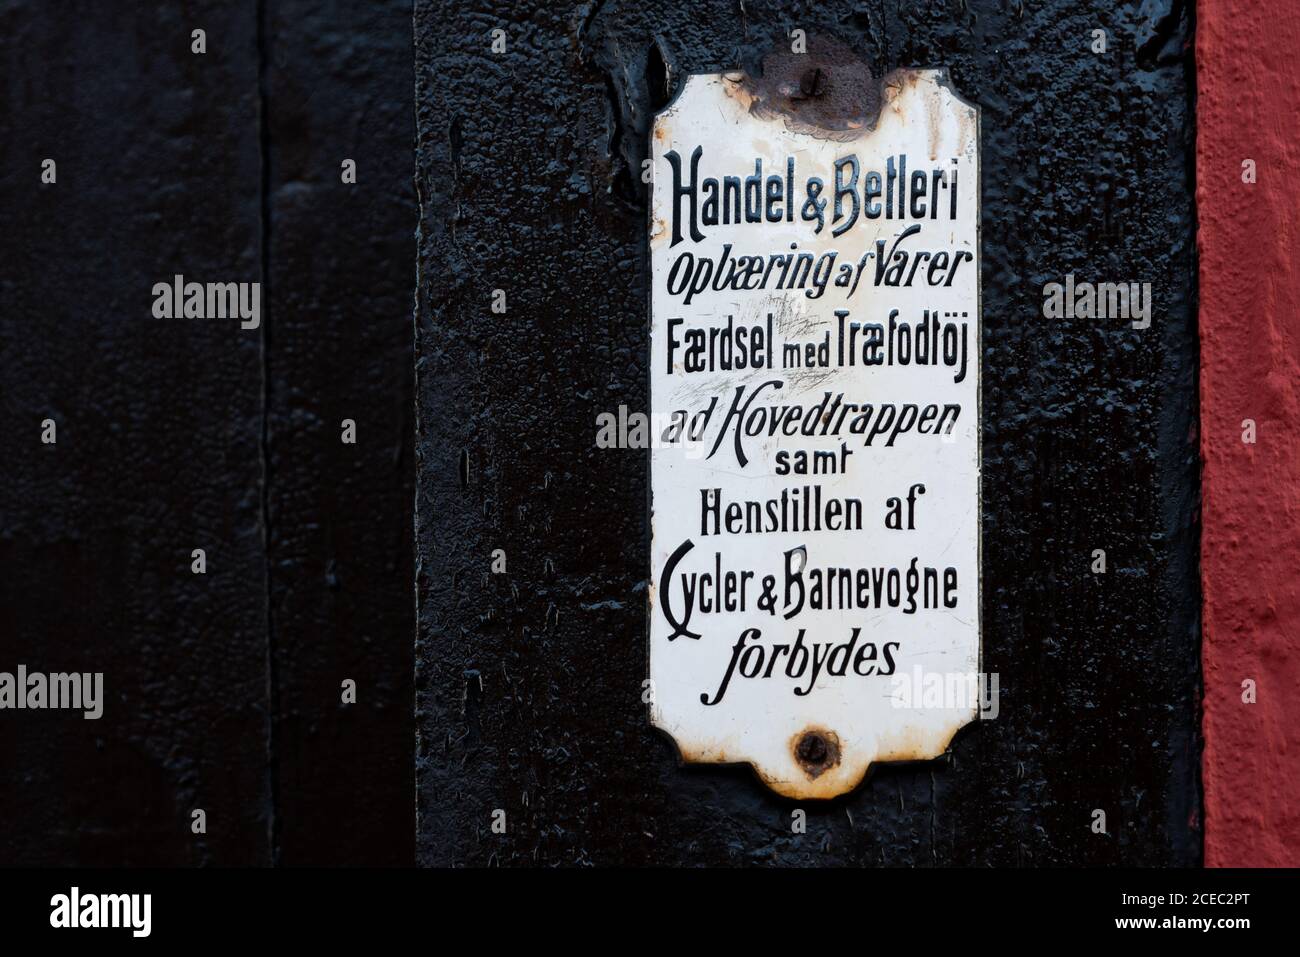 Handel & Betleri
Opbæring af Varer
Færdsel med Træfodtöj
ad Hovedtrappen
samt
Henstillen af
Cycler & Barnevogne
forbydes
alamy
Image ID: 2CEC2PT
www.alamy.com